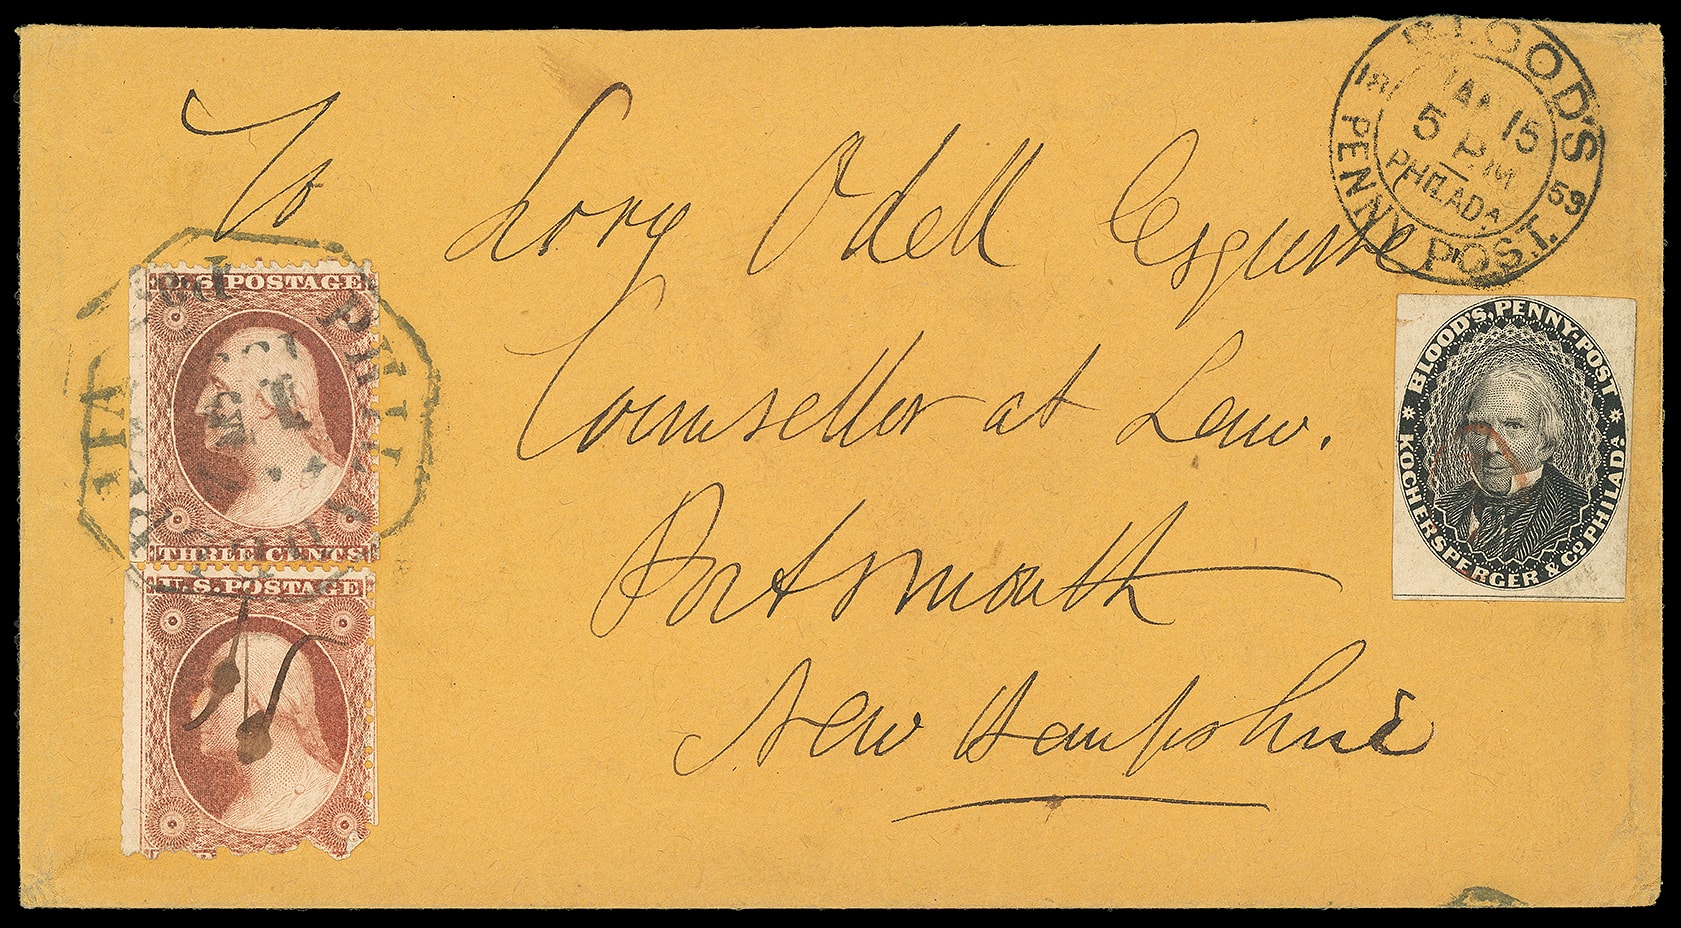 To Lory Odell Esquire
Counsellor at Law.
Portsmouth
New Hampshire
BLOOD'S
JAN 15
5 P.M
PHILADA
18 59
PENNY POST.
U.S. POSTAGE
THREE CENTS
U.S. POSTAGE
BLOOD'S, PENNY-POST
KOCHERSPERGER & CO. PHILADA.